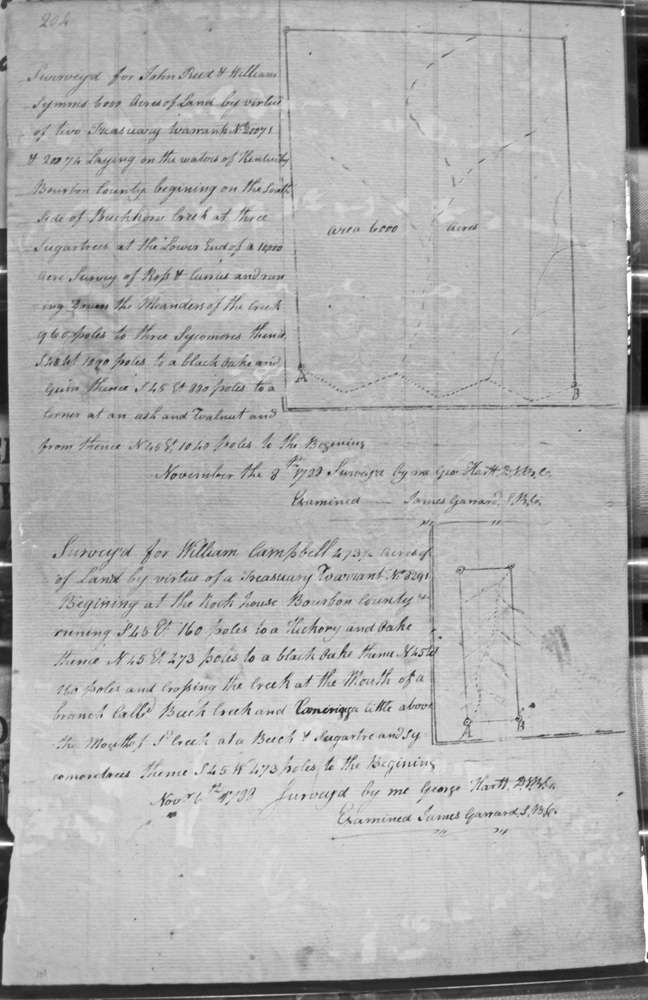 204
Surveyed for John Reed & William
Symms 6000 Acres of Land by virtue
of two Treasuary Warrants No 20071
& 20074 Laying on the waters of Kentucky
Bourbon County begining on the South
side of Buckhorn Creek at three
Sugartrees at the Lower End of a 10,000
acre Survey of Ross & Curries and run
ing Down the Meanders of the Creek
960 poles to three Sycomores thence
S 45 Wt 1090 poles to a black Oake and
Guim thence S 45 Et 880 poles to a
Corner at an ash and Walnut and
from thence N 45 Et 1040 Poles to the Begining
November the 8th 1788 Survey'd by me Geo: Hartt D.S.B.C.
Examined James Garrard, S.B.Co.
area 6000 Acres
A
B
Survey'd for William Campbell 473½ Acres of
of Land by virtue of a Treasuary Warrant No 8291
Begining at the Rock house Bourbon County &
runing S 45 Et 160 poles to a Hickory and Oake
thence N 45 Et 473 poles to a black Oake thence N 45 Wt
160 poles and Crossing the Creek at the Mouth of a
branch Calld Buck Creek and a little above
the Mouth of sd Creek at a Beech & Sugartree and Sy-
comoretrees thence S 45 W 473 poles to the Begining
Novr 6th 1788 Survey'd by me George Hartt D.S.B.Co.
Examined James Garrard, S.B.C.
A
B